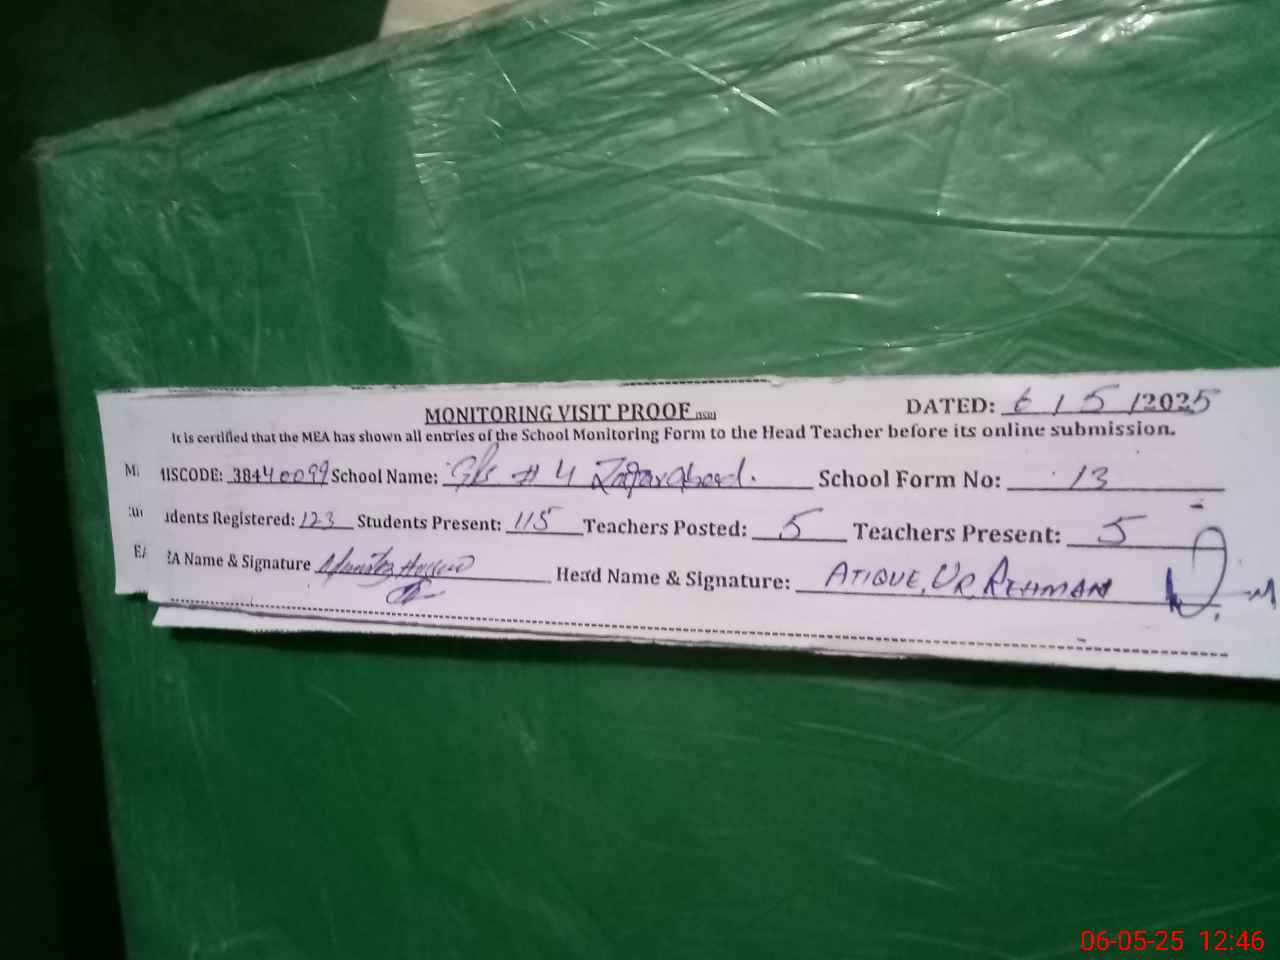 MONITORING VISIT PROOF DATED: 6/5/2025
It is certified that the MEA has shown all entries of the School Monitoring Form to the Head Teacher before its online submission.
MISCODE: 38440099 School Name: GPS # 4 Zafarabad. School Form No: 13
dents Registered: 123 Students Present: 115 Teachers Posted: 5 Teachers Present: 5
EA Name & Signature Head Name & Signature: ATIQUE UR REHMAN
06-05-25 12:46